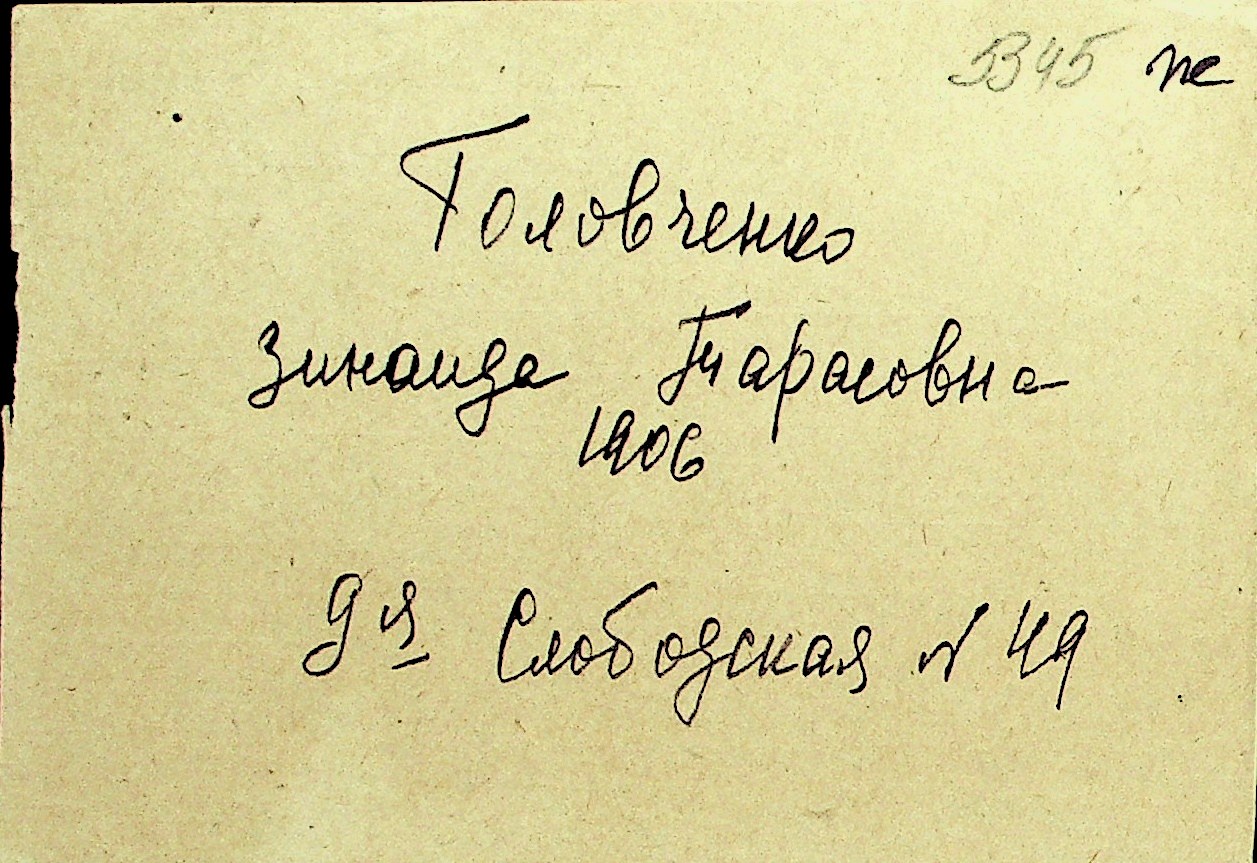 5345 пе
Головченко
Зинаида Тарасовна
1906
9я Слободская № 49